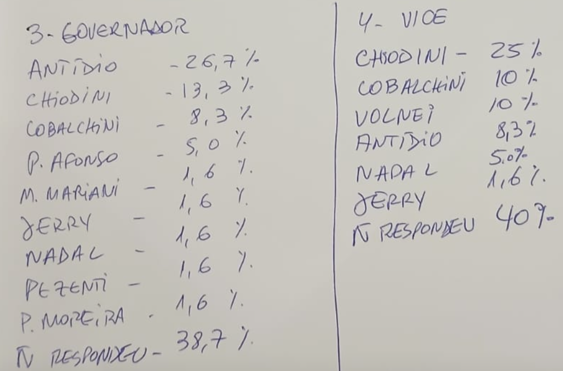 3- GOVERNADOR
ANTÍDIO - 26,7 %
CHIODINI - 13,3 %
COBALCHINI - 8,3 %
P. AFONSO - 5,0 %
M. MARIANI - 1,6 %
JERRY - 1,6 %
NADAL - 1,6 %
PEZENTI - 1,6 %
P. MOREIRA - 1,6 %
Ñ RESPONDEU - 38,7 %
4- VICE
CHIODINI - 25 %
COBALCHINI 10 %
VOLNEI 10 %
ANTÍDIO 8,3%
NADAL 5,0%
JERRY 1,6 %
Ñ RESPONDEU 40%